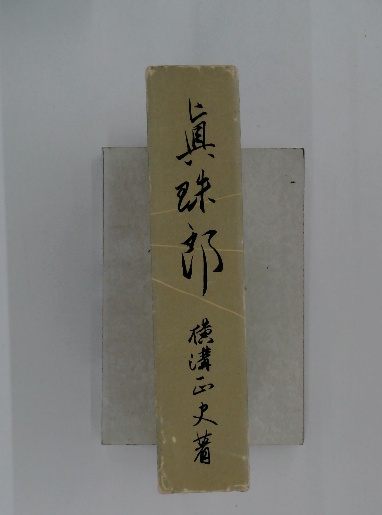 眞珠郎 横溝正史著